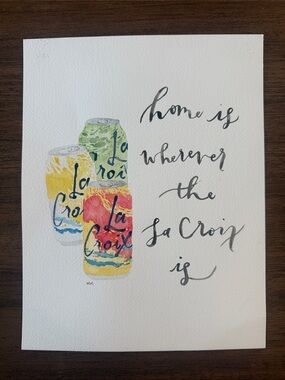 home is
wherever
the
La Croix
is
La
Croi
La
Cro
La
Croix